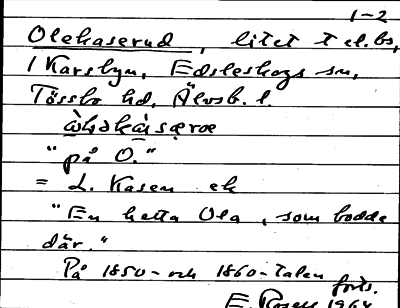 1-2
Olekaserud, litet t el. bs,
i Karsbyn, Edsleskogs sn,
Tössbo hd, Älvsb. l.
"på O."
= L. Kasen ek
"En hette Ola, som bodde
där."
På 1850- och 1860-talen
forts.
E. Rosell 1964